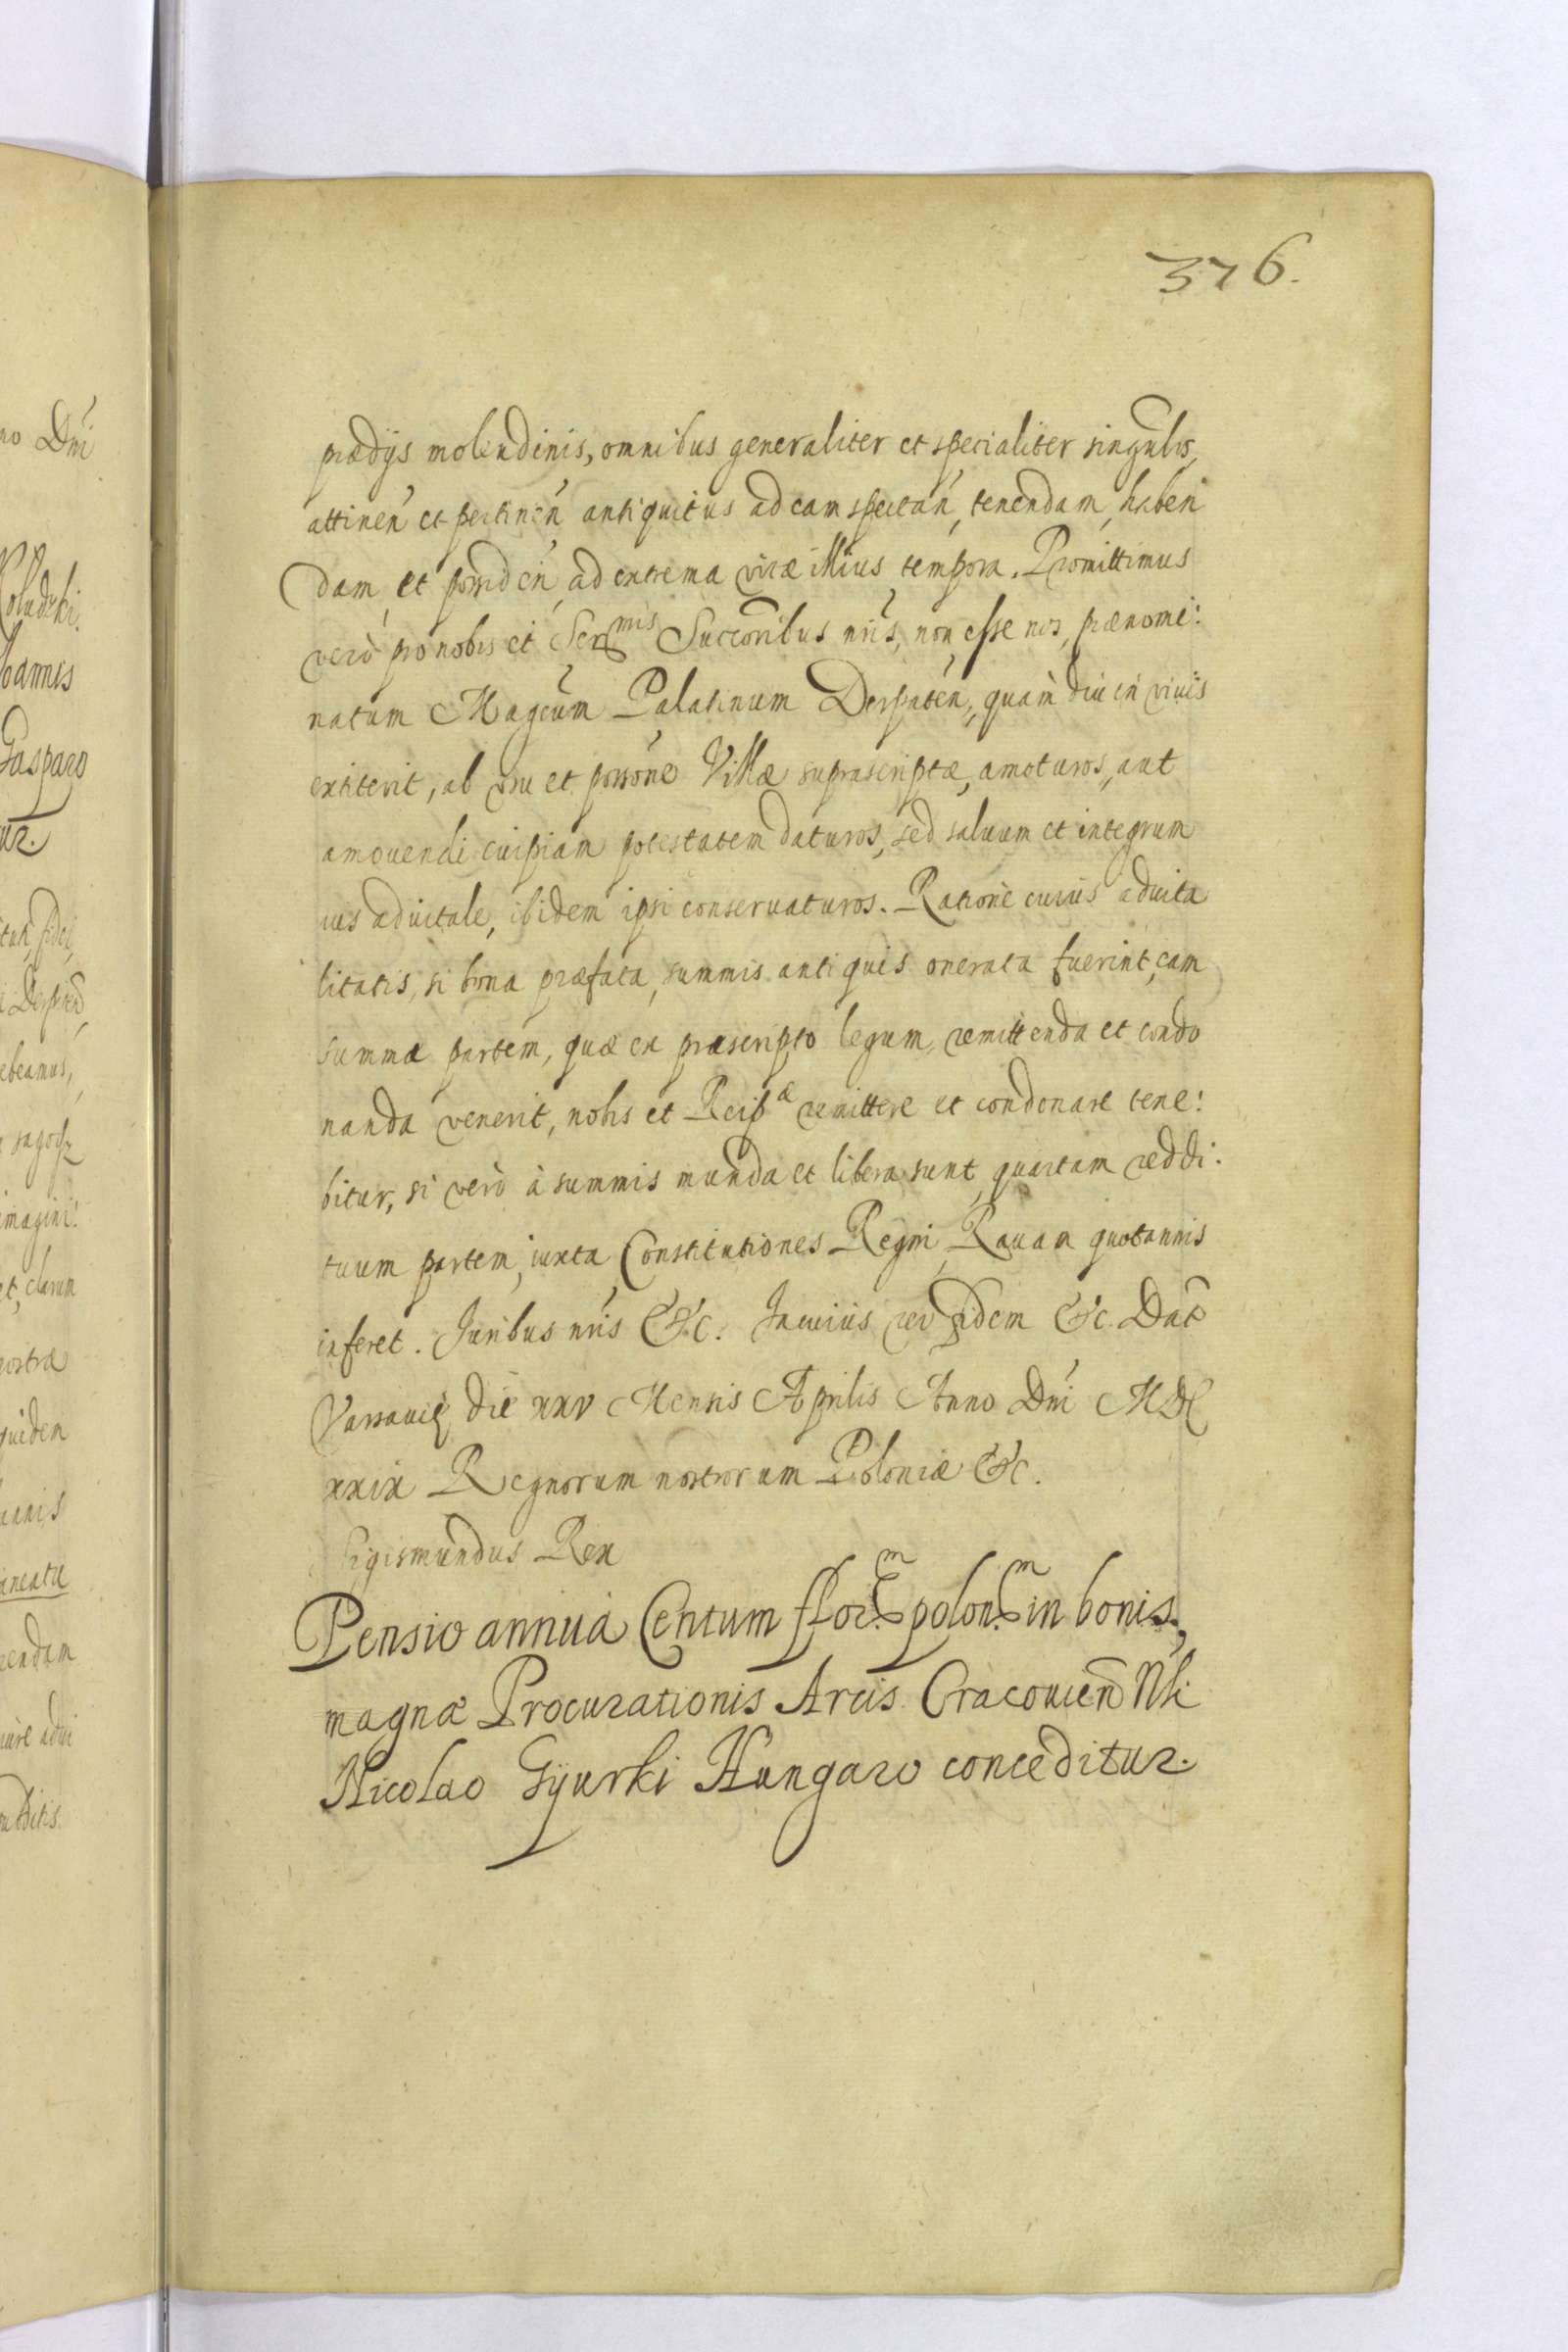 376.
prædijs molendinis, omnibus generaliter et specialiter singulis,
attinen̄ et pertinen̄ antiquitus ad eam spectan̄, tenendam, haben
dam, et possiden̄, ad extrema vitæ illius tempora. Promittimus
verò pro nobis et Ser^mis Succoribus nr̄is, non esse nos, prænomi:
natum Magcum Palatinum Derpaten̄, quàm diu in viuis
extiterit, ab usu et possōne Villæ suprascriptæ, amoturos, aut
amouendi cuipiam potestatem daturos, sed saluum et integrum
ius aduitale, ibidem ipsi conseruaturos. Ratione cuius aduita
litatis, si bona præfata, summis antiquis onerata fuerint, eam
summæ partem, quæ ex præscripto legum, remittenda et condo
nanda venerit, nobis et Reip^æ remittere et condonare tene:
bitur, si verò à summis munda et libera sunt, quartam reddi:
tuum partem, iuxta Constitutiones Regni, Rauam quotannis
inferet. Juribus nr̄is &c. In cuius rei fidem &c. Dat
Varsauiæ die xxv Mensis Aprilis Anno Dni MDC
xxix Regnorum nostrorum Poloniæ &c.
Sigismundus Rex
Pensio annua Centum flor^m polon^m in bonis,
magnæ Procurationis Arcis Cracouien̄ Nli
Nicolao Gyurki Hungaro conceditur.
no Dni
Joannis
Gasparo
ebeamus,
imagini:
et, clarum
nostra
quidem